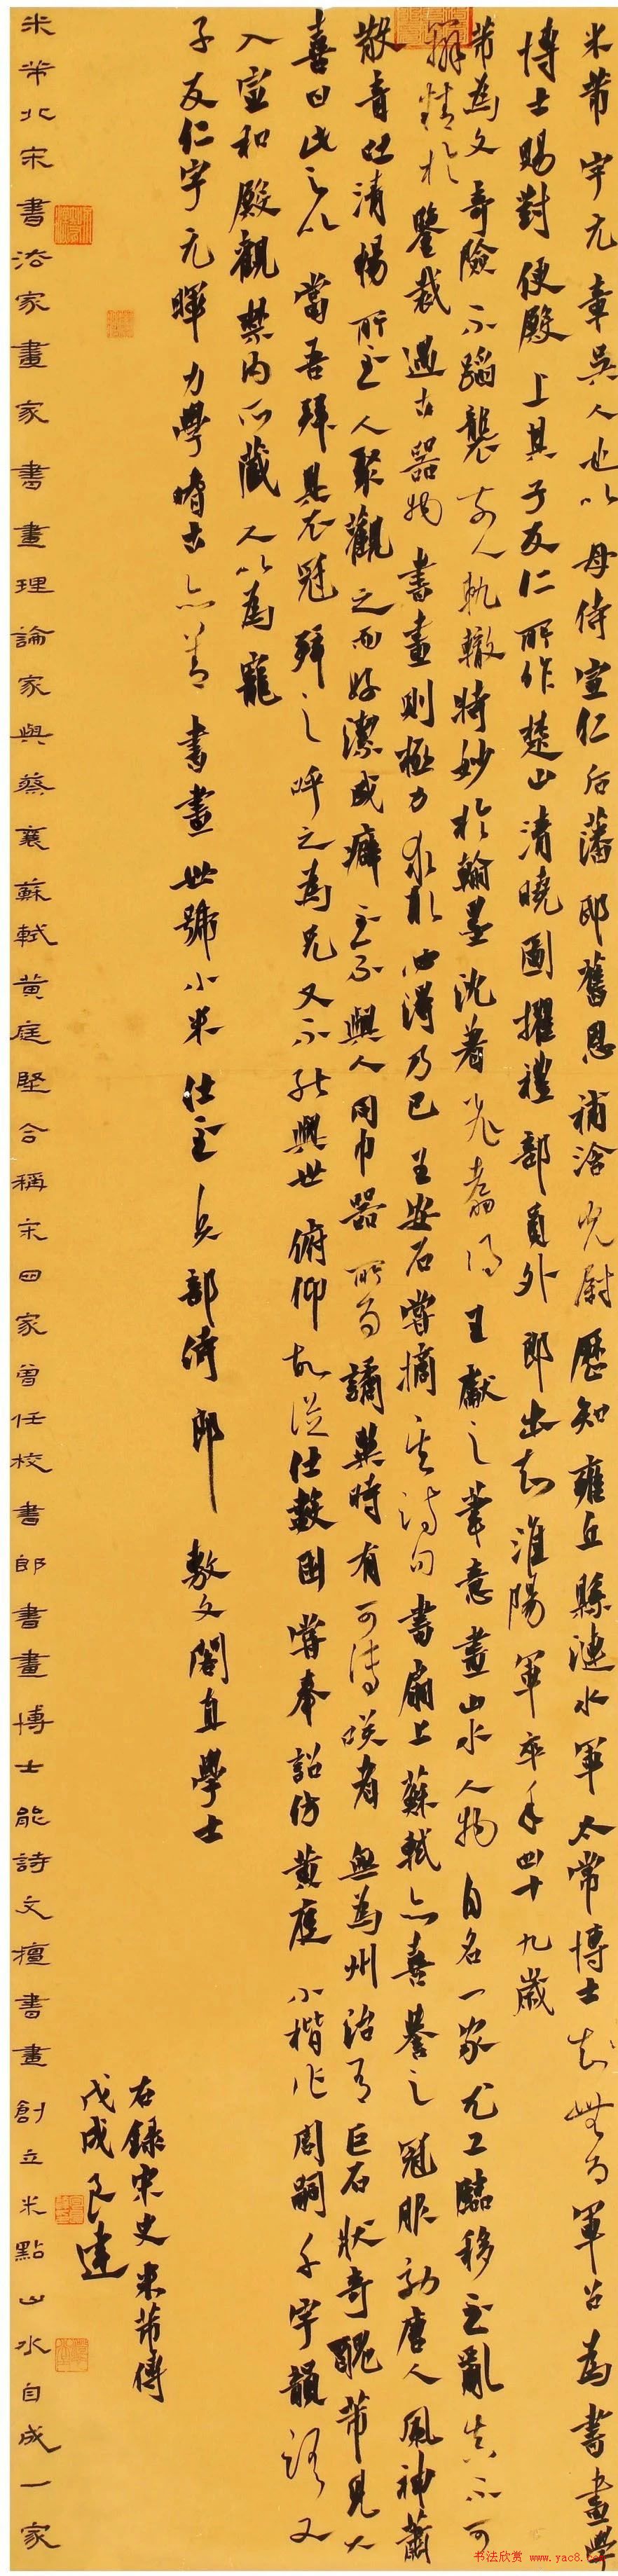 米芾字元章吳人也以母侍宣仁后藩邸舊恩補浛光尉歷知雍丘縣漣水軍太常博士知無為軍召為書畫學
博士賜對便殿上其子友仁所作楚山清曉圖擢禮部員外郎出知淮陽軍卒年四十九歲
芾為文奇險不蹈襲前人軌轍特妙於翰墨沈著飛翥得王獻之筆意畫山水人物自名一家尤工臨移至亂真不可
辨精於鑒裁遇古器物書畫則極力求取必得乃已王安石嘗摘其詩句書扇上蘇軾亦喜譽之冠服效唐人風神蕭
散音吐清暢所至人聚觀之而好潔成癖至不與人同巾器所為譎異時有可傳笑者無為州治有巨石狀奇醜芾見大
喜曰此足以當吾拜具衣冠拜之呼之為兄又不能與世俯仰故從仕數困嘗奉詔仿黃庭小楷作周嗣千字韻語又
入宣和殿觀禁內所藏人以為寵
子友仁字元暉力學嗜古亦善書畫世號小米仕至兵部侍郎敷文閣直學士
右錄宋史米芾傳
戊戌良建
米芾北宋書法家畫家書畫理論家與蔡襄蘇軾黃庭堅合稱宋四家曾任校書郎書畫博士能詩文擅書畫創立米點山水自成一家
书法欣赏 www.yac8.com